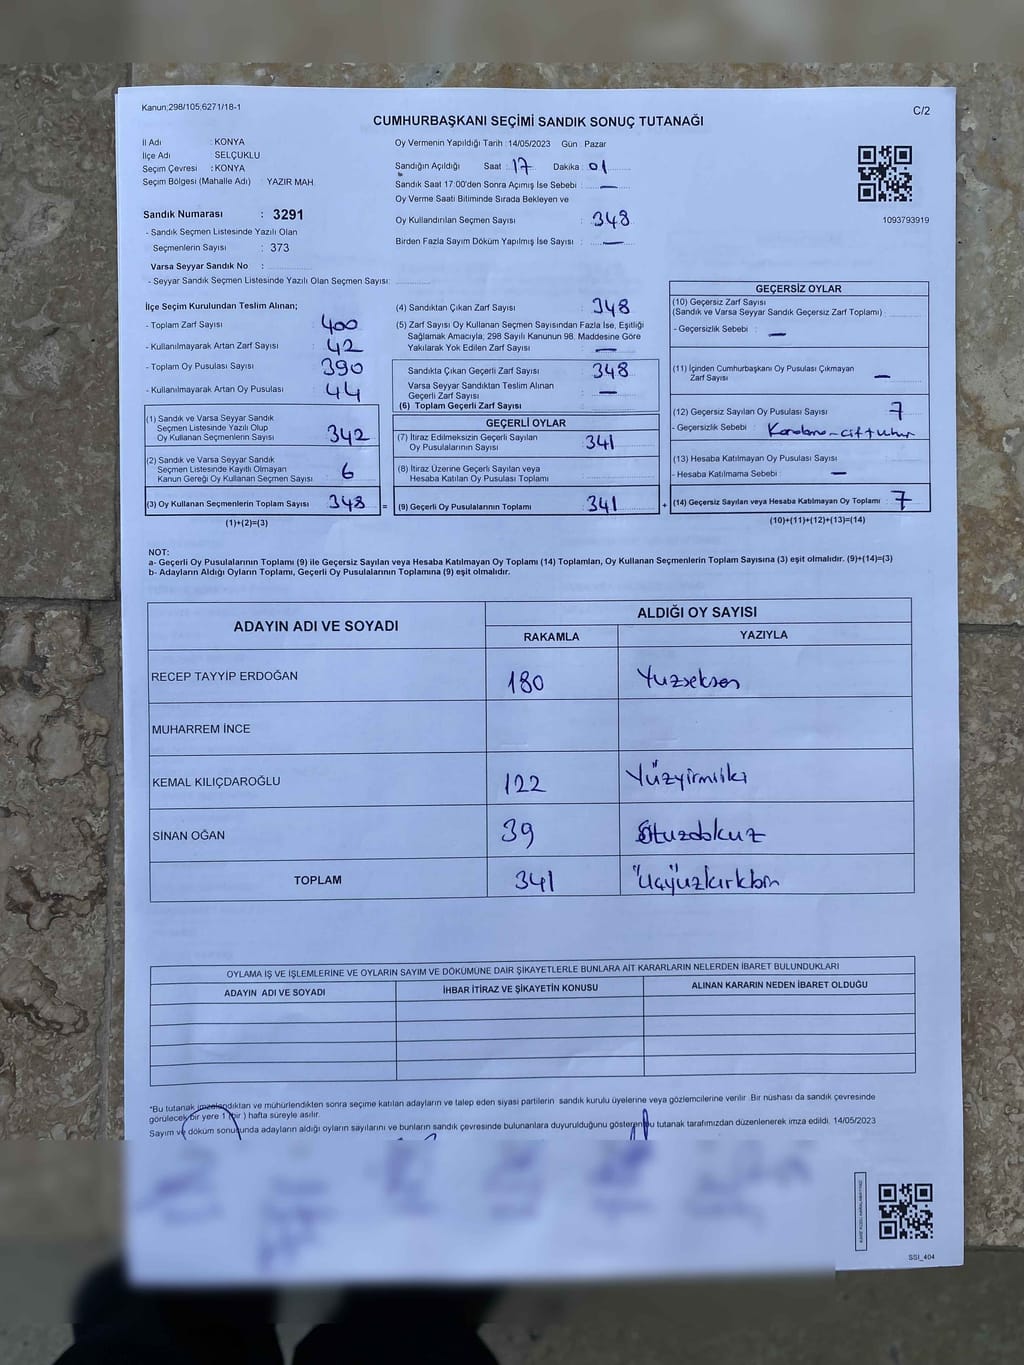 Kanun;298/105;6271/18-1
C/2
CUMHURBAŞKANI SEÇİMİ SANDIK SONUÇ TUTANAĞI
İl Adı : KONYA
İlçe Adı SELÇUKLU
Seçim Çevresi : KONYA
Seçim Bölgesi (Mahalle Adı) YAZIR MAH.
Sandık Numarası : 3291
- Sandık Seçmen Listesinde Yazılı Olan
Seçmenlerin Sayısı : 373
Varsa Seyyar Sandık No :
- Seyyar Sandık Seçmen Listesinde Yazılı Olan Seçmen Sayısı:
Oy Vermenin Yapıldığı Tarih : 14/05/2023 Gün : Pazar
Sandığın Açıldığı Saat : 17 Dakika : 01
Sandık Saat 17:00'den Sonra Açımış İse Sebebi : —
Oy Verme Saati Bitiminde Sırada Bekleyen ve
Oy Kullandırılan Seçmen Sayısı : 348
Birden Fazla Sayım Döküm Yapılmış İse Sayısı : —
1093793919
İlçe Seçim Kurulundan Teslim Alınan;
- Toplam Zarf Sayısı : 400
- Kullanılmayarak Artan Zarf Sayısı : 42
- Toplam Oy Pusulası Sayısı : 390
- Kullanılmayarak Artan Oy Pusulası : 44
(1) Sandık ve Varsa Seyyar Sandık
Seçmen Listesinde Yazılı Olup
Oy Kullanan Seçmenlerin Sayısı : 342
(2) Sandık ve Varsa Seyyar Sandık
Seçmen Listesinde Kayıtlı Olmayan
Kanun Gereği Oy Kullanan Seçmen Sayısı : 6
(3) Oy Kullanan Seçmenlerin Toplam Sayısı : 348
(1)+(2)=(3)
(4) Sandıktan Çıkan Zarf Sayısı : 348
(5) Zarf Sayısı Oy Kullanan Seçmen Sayısından Fazla İse, Eşitliği
Sağlamak Amacıyla; 298 Sayılı Kanunun 98. Maddesine Göre
Yakılarak Yok Edilen Zarf Sayısı : —
Sandıkta Çıkan Geçerli Zarf Sayısı : 348
Varsa Seyyar Sandıktan Teslim Alınan
Geçerli Zarf Sayısı : —
(6) Toplam Geçerli Zarf Sayısı
GEÇERLİ OYLAR
(7) İtiraz Edilmeksizin Geçerli Sayılan
Oy Pusulalarının Sayısı : 341
(8) İtiraz Üzerine Geçerli Sayılan veya
Hesaba Katılan Oy Pusulası Toplamı :
= (9) Geçerli Oy Pusulalarının Toplamı : 341
GEÇERSİZ OYLAR
(10) Geçersiz Zarf Sayısı
(Sandık ve Varsa Seyyar Sandık Geçersiz Zarf Toplamı) :
- Geçersizlik Sebebi : —
(11) İçinden Cumhurbaşkanı Oy Pusulası Çıkmayan
Zarf Sayısı : —
(12) Geçersiz Sayılan Oy Pusulası Sayısı : 7
- Geçersizlik Sebebi :
(13) Hesaba Katılmayan Oy Pusulası Sayısı :
- Hesaba Katılmama Sebebi : —
+ (14) Geçersiz Sayılan veya Hesaba Katılmayan Oy Toplamı : 7
(10)+(11)+(12)+(13)=(14)
NOT:
a- Geçerli Oy Pusulalarının Toplamı (9) ile Geçersiz Sayılan veya Hesaba Katılmayan Oy Toplamı (14) Toplamları, Oy Kullanan Seçmenlerin Toplam Sayısına (3) eşit olmalıdır. (9)+(14)=(3)
b- Adayların Aldığı Oyların Toplamı, Geçerli Oy Pusulalarının Toplamına (9) eşit olmalıdır.
ADAYIN ADI VE SOYADI
ALDIĞI OY SAYISI
RAKAMLA YAZIYLA
RECEP TAYYİP ERDOĞAN 180 Yuzseksen
MUHARREM İNCE
KEMAL KILIÇDAROĞLU 122 Yüzyirmiiki
SİNAN OĞAN 39 Otuzdokuz
TOPLAM 341 Üçyüzkırkbir
OYLAMA İŞ VE İŞLEMLERİNE VE OYLARIN SAYIM VE DÖKÜMÜNE DAİR ŞİKAYETLERLE BUNLARA AİT KARARLARIN NELERDEN İBARET BULUNDUKLARI
ADAYIN ADI VE SOYADI İHBAR İTİRAZ VE ŞİKAYETİN KONUSU ALINAN KARARIN NEDEN İBARET OLDUĞU
*Bu tutanak imzalandıktan ve mühürlendikten sonra seçime katılan adayların ve talep eden siyasi partilerin sandık kurulu üyelerine veya gözlemcilerine verilir. Bir nüshası da sandık çevresinde
görülecek bir yere 1 (bir ) hafta süreyle asılır.
Sayım ve döküm sonucunda adayların aldığı oyların sayılarını ve bunların sandık çevresinde bulunanlara duyurulduğunu gösteren bu tutanak tarafımızdan düzenlenerek imza edildi. 14/05/2023
SSI_404